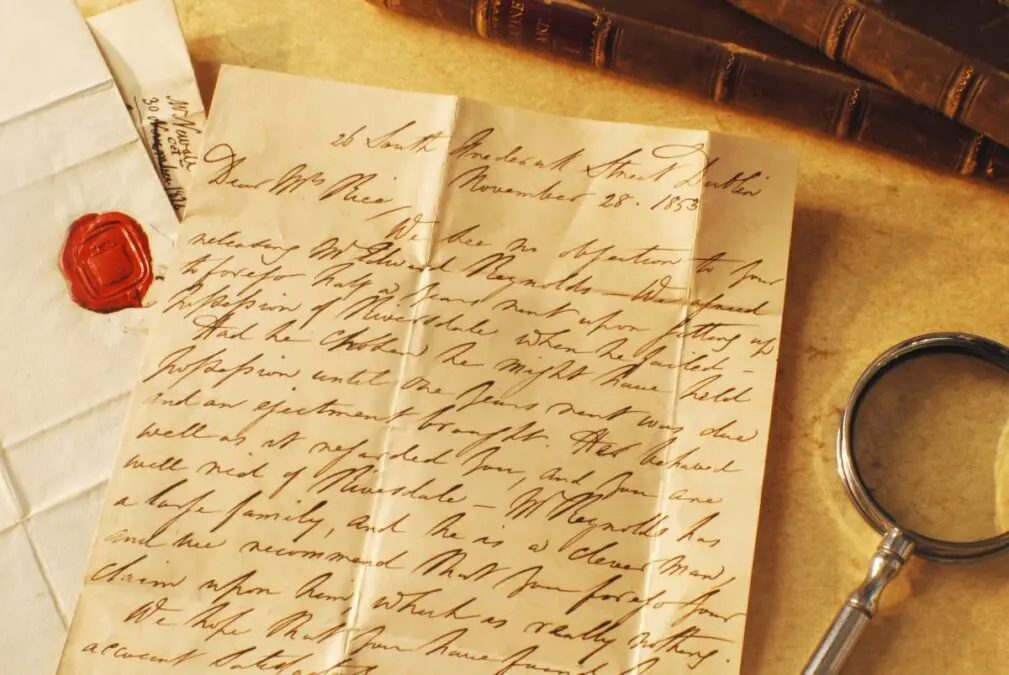 26 South Frederick Street Dublin
November 28. 1853
Dear Mrs Rice,
We see no objection to your
releasing Mr Edward Reynolds – We agreed
to forego half a years rent upon getting up
possession of Riversdale when he failed –
Had he chosen he might have held
possession until the years rent was due
and an ejectment brought. He behaved
well as it regarded you, and you are
well rid of Riversdale – Mr Reynolds has
a large family, and he is a clever man,
and we recommend that you forego your
claim upon him, which is really nothing.
We hope that you have found
account
30 November